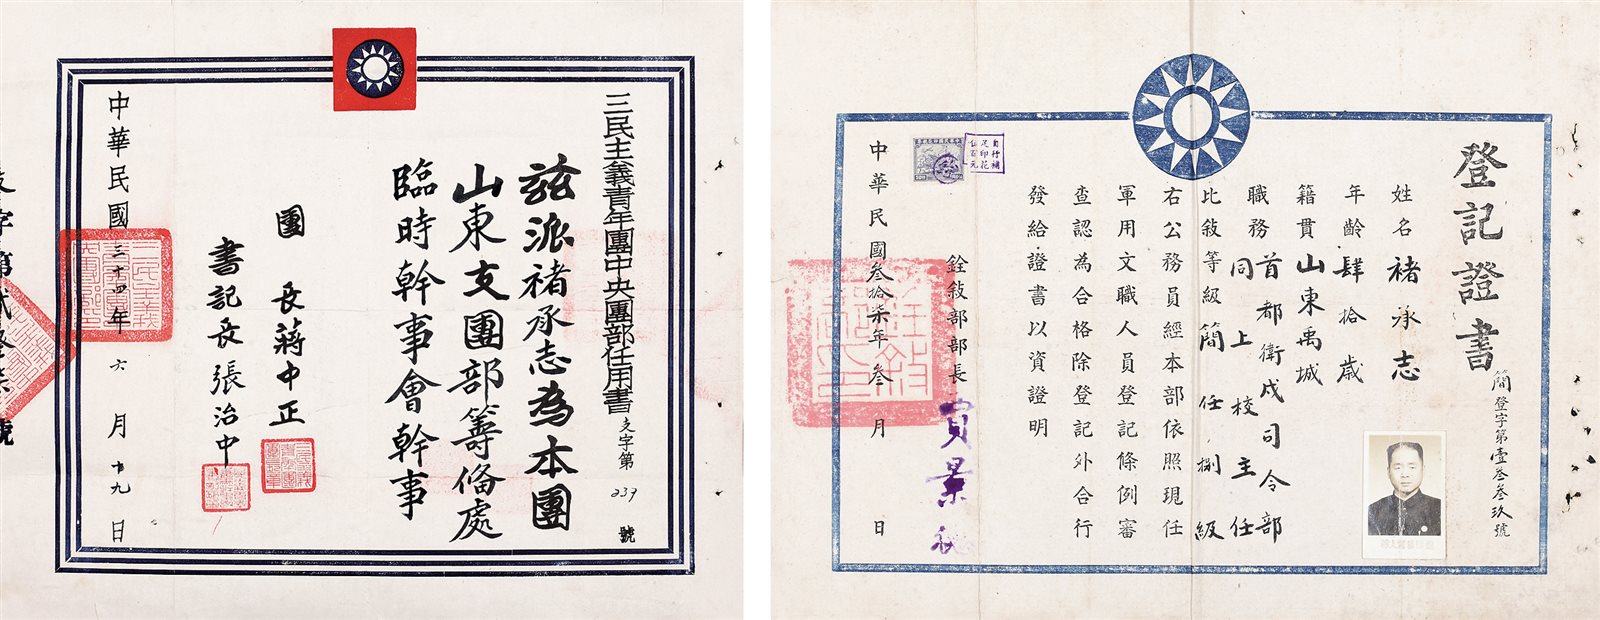 三民主義青年團中央團部任用書
支字第
239
號
茲派褚承志為本團
山東支團部籌備處
臨時幹事會幹事
團長蔣中正
書記長張治中
中華民國三十四年六月十九日
登記證書
簡登字第壹叁叁玖號
姓名褚承志
年齡肆拾歲
籍貫山東禹城
職務首都衛戍司令部
同上校主任
比敘等級簡任捌級
右公務員經本部依照現任
軍用文職人員登記條例審
查認為合格除登記外合行
發給證書以資證明
銓敍部部長賈景德
自行補
足印花
伍百元
中華民國叁拾柒年叁月日